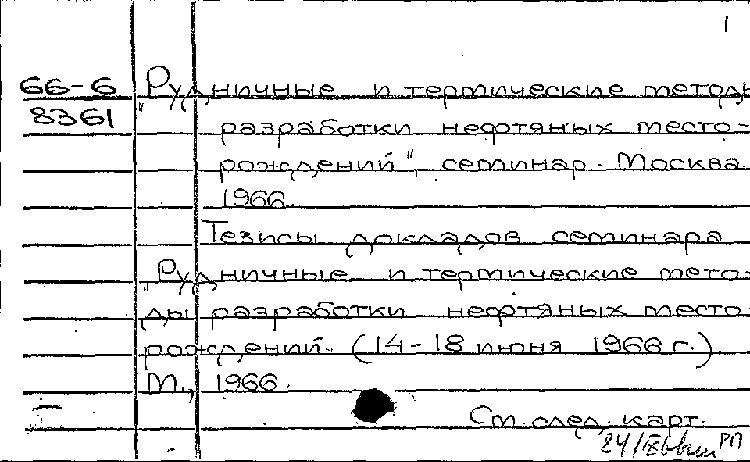 1
66-6 "Рудничные и термические методы
8361 разработки нефтяных место-
рождений", семинар. Москва.
1966.
Тезисы докладов семинара
"Рудничные и термические мето-
ды разработки нефтяных место-
рождений. (14-18 июня 1966 г.)
М., 1966.
См. след. карт.
РП